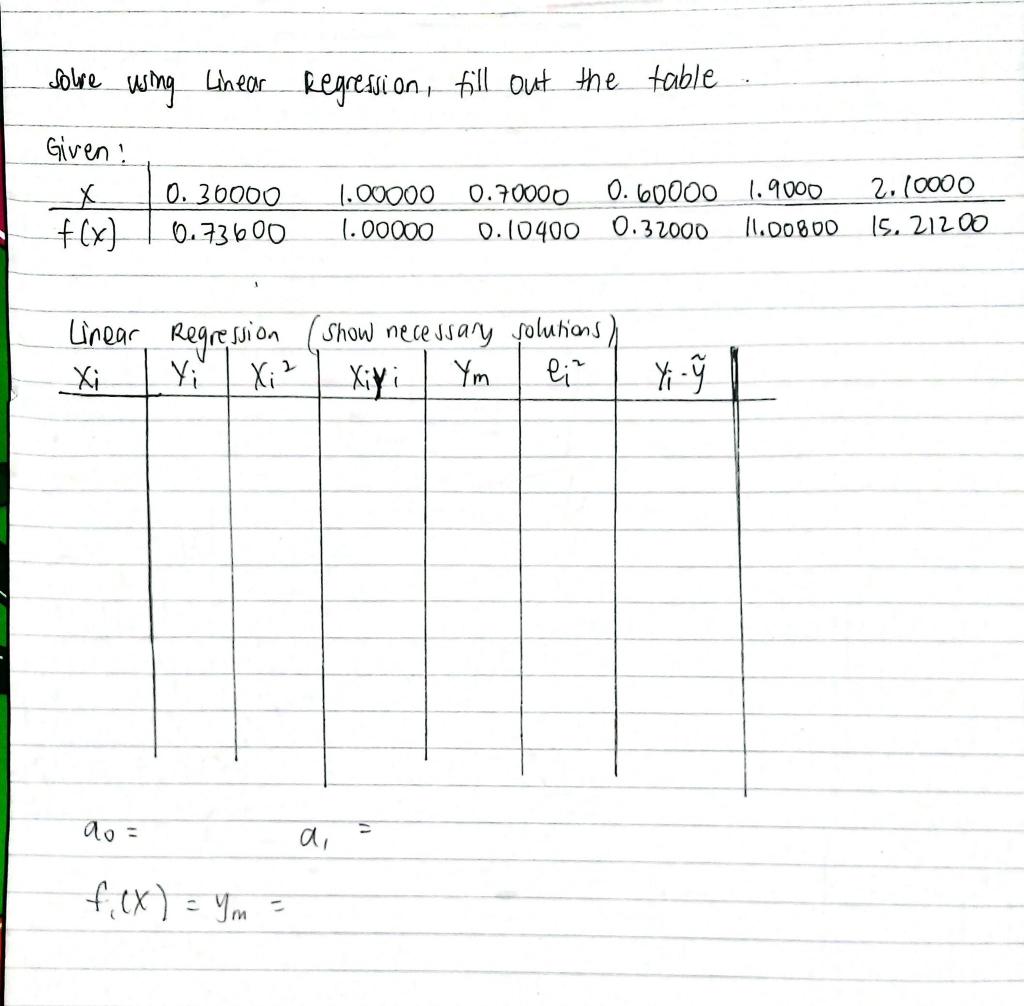 solve using Linear Regression, fill out the table.
Given:
x 0.30000 1.00000 0.70000 0.60000 1.9000 2.10000
f(x) 0.73600 1.00000 0.10400 0.32000 11.00800 15.21200
Linear Regression (show necessary solutions)
Xi Yi Xi² Xiyi Ym ei² Yi-ỹ
a₀ = a₁ =
f₁(x) = ym =